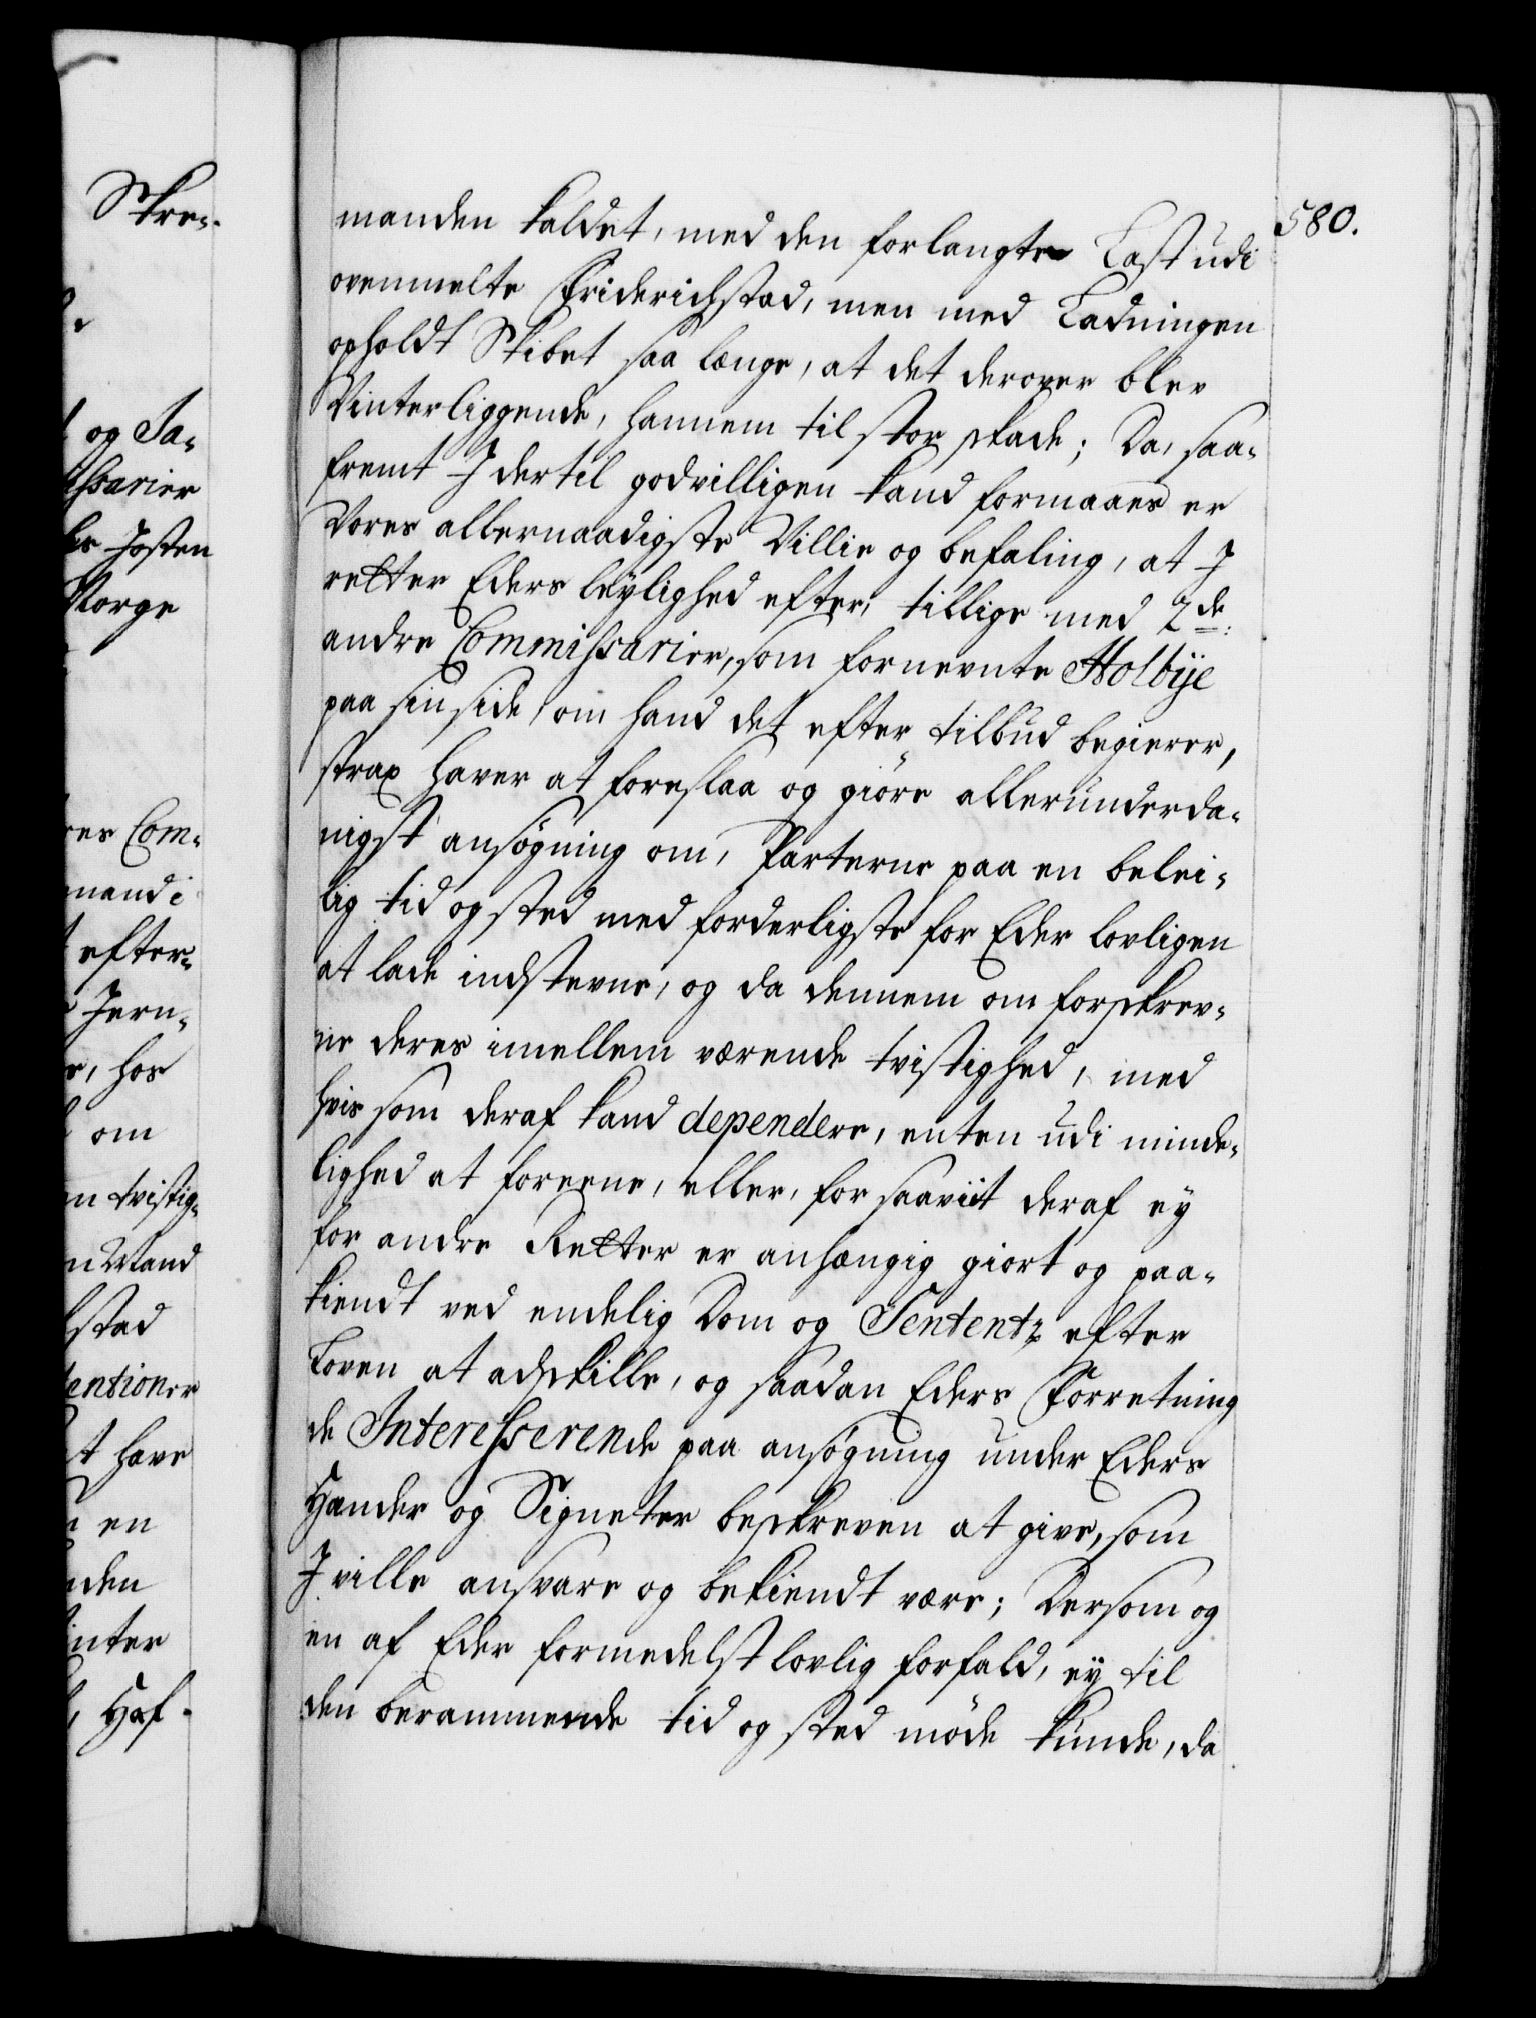 580.
manden kaldet, med den forlangte Last udi
ovenmelte Friderichstad, men med Ladningen
opholdt Skibet saa længe, at det derover blev
Vinterliggende, hannem til stor skade; Da, saa-
fremt I dertil godvilligen kand formaaes er
Vores allernaadigste Villie og befaling, at I
retter Eders leylighed efter, tillige med 2de:
andre Commissarier, som fornevnte Holbÿe
paa sin side, om hand det efter tilbud begierer,
strax haver at foreslaa og giøre allerunderda-
nigst ansøgning om, Parterne paa en belei-
lig tid og sted med forderligste for Eder lovligen
at lade indstevne, og da dennem om forskrev-
ne deres imellem værende tvistighed, med
hvis som deraf kand dependere, enten udi minde-
lighed at foreene, eller, for saaviit deraf ey
for andre Retter er anhængig giort og paa-
kiendt ved endelig Dom og Sententz efter
Loven at adskille, og saadan Eders Forretning
de Interesserende paa ansøgning under Eders
Hænder og Signeter beskreven at give, som
I ville ansvare og bekiendt være; Dersom og
en af Eder formedelst lovlig forfald, ey til
den berammende tid og sted møde kunde, da
Skre-
og Ja-
ssarier
Josten
Norge
res Com-
mand i
efter-
Jern-
, hos
om
n tvistig-
n Mand
stad
tentioner
t have
en
den
inter
, Hof-